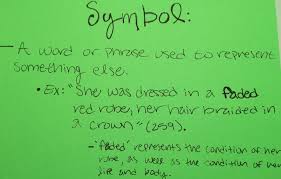 Symbol:
- A word or phrase used to represent
something else.
• Ex: "She was dressed in a faded
red robe, her hair braided in
a crown" (259).
- 'faded' represents the condition of her
robe, as well as the condition of her
life and body.